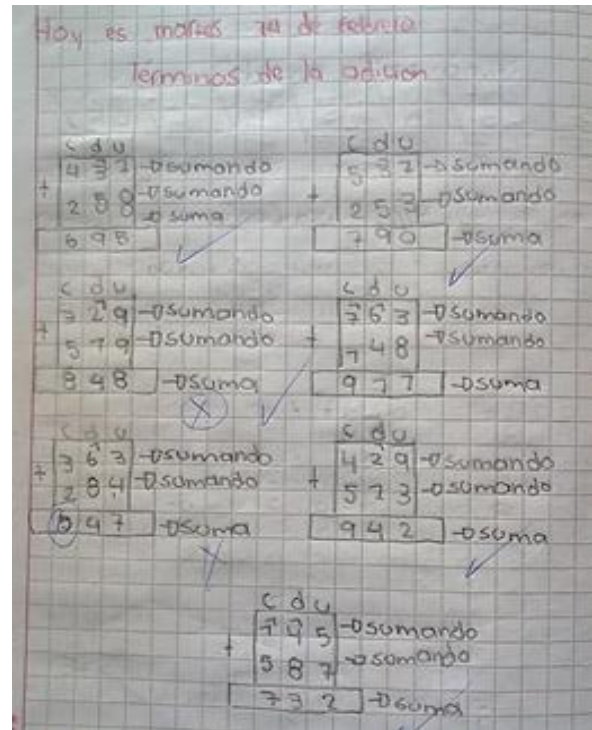 Hoy es martes 14 de febrero
Terminos de la adicion
c d u
4 3 7 sumando
+ 2 5 8 sumando
suma
6 9 5
c d u
5 3 7 sumando
+ 2 5 3 sumando
7 9 0 suma
c d u
3 2 9 sumando
+ 5 1 9 sumando
8 4 8 suma
c d u
7 6 3 sumando
+ 1 4 8 sumando
9 1 1 suma
c d u
3 6 3 sumando
+ 2 8 4 sumando
4 7 suma
c d u
4 2 9 sumando
+ 5 1 3 sumando
9 4 2 suma
c d u
1 4 5 sumando
+ 5 8 7 sumando
7 3 2 suma